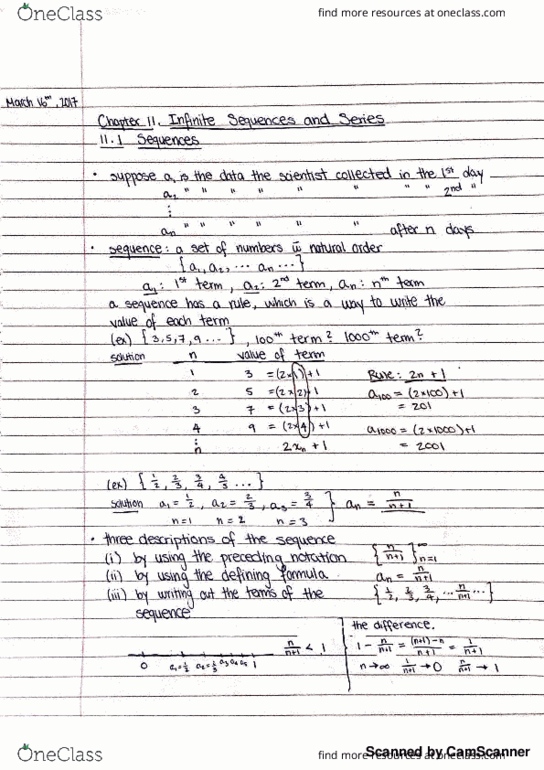 OneClass
find more resources at oneclass.com
March 16th, 2017
Chapter 11. Infinite Sequences and Series
11.1 Sequences
• suppose a₁ is the data the scientist collected in the 1st day
a₂ " " " " " " " " 2nd "
⋮
aₙ " " " " " " after n days
• sequence : a set of numbers w natural order
{a₁, a₂, ... aₙ ...}
a₁ : 1st term , a₂ : 2nd term , aₙ : nth term
a sequence has a rule, which is a way to write the
value of each term
(ex) {3, 5, 7, 9 ... } , 100th term? 1000th term?
solution n value of term
1 3 = (2×1)+1 Rule : 2n + 1
2 5 = (2×2)+1 a₁₀₀ = (2×100)+1
3 7 = (2×3)+1 = 201
4 9 = (2×4)+1 a₁₀₀₀ = (2×1000)+1
⋮ n 2xₙ +1 = 2001
(ex) {1/2, 2/3, 3/4, 4/5 ... }
solution a₁ = 1/2 , a₂ = 2/3 , a₃ = 3/4 } aₙ = n/(n+1)
n=1 n=2 n=3
• three descriptions of the sequence
(i) by using the preceding notation {n/(n+1)}∞n=1
(ii) by using the defining formula aₙ = n/(n+1)
(iii) by writing out the terms of the {1/2, 2/3, 3/4, ... n/(n+1) ...}
sequence
n/(n+1) < 1
0 a₁=1/2 a₂=2/3 a₃ a₄ a₅ 1
the difference.
1 - n/(n+1) = ((n+1)-n)/(n+1) = 1/(n+1)
n→∞ 1/(n+1) → 0 n/(n+1) → 1
OneClass
find more resources at oneclass.com
Scanned by CamScanner